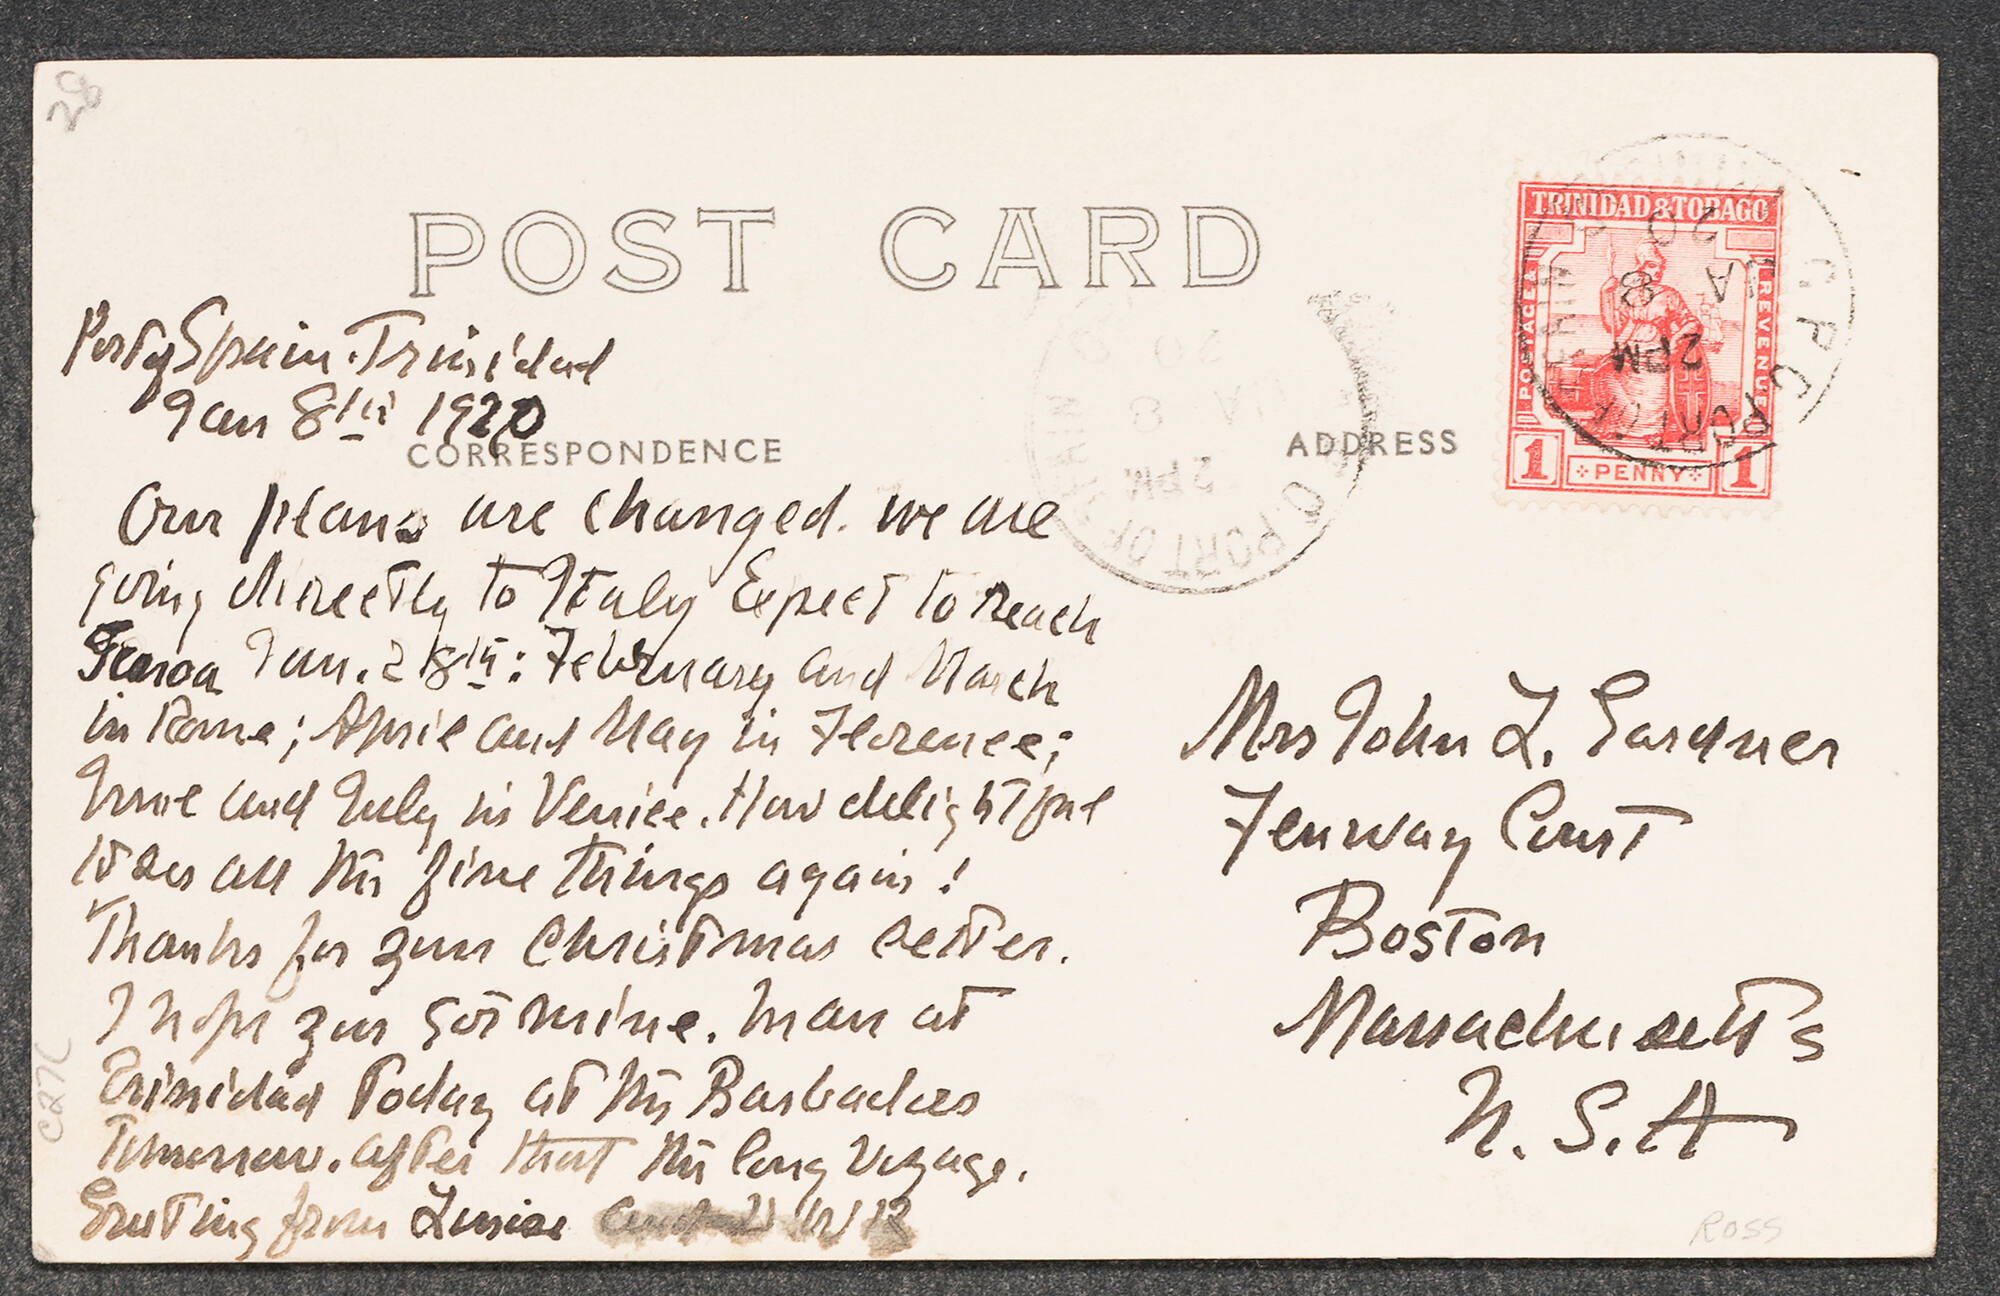 28
POST CARD
TRINIDAD & TOBAGO
POSTAGE & REVENUE
1 PENNY 1
G.P.O. PORT OF SPAIN
2 PM
8 JA
20
G.P.O. PORT OF SPAIN
2 PM
8 JA
20
Port of Spain. Trinidad
Jan 8th 1920
CORRESPONDENCE
ADDRESS
Our plans are changed. we are
going directly to Italy Expect to reach
Genoa Jan. 28th: February and March
in Rome; April and May in Florence;
June and July in Venice. How delightful
to see all the fine things again!
Thanks for your Christmas letter.
I hope you got mine. We are at
Trinidad today at the Barbadoes
tomorrow. after that the long voyage.
Greeting from Louise and
Mrs John L. Gardner
Fenway Court
Boston
Massachusetts
U.S.A
C27L
ROSS